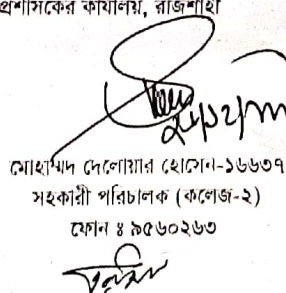 প্রশাসকের কার্যালয়, রাজশাহী
মোহাম্মদ দেলোয়ার হোসেন-১৬৬৩৭
সহকারী পরিচালক (কলেজ-২)
ফোন ঃ ৯৫৬০২৬৩